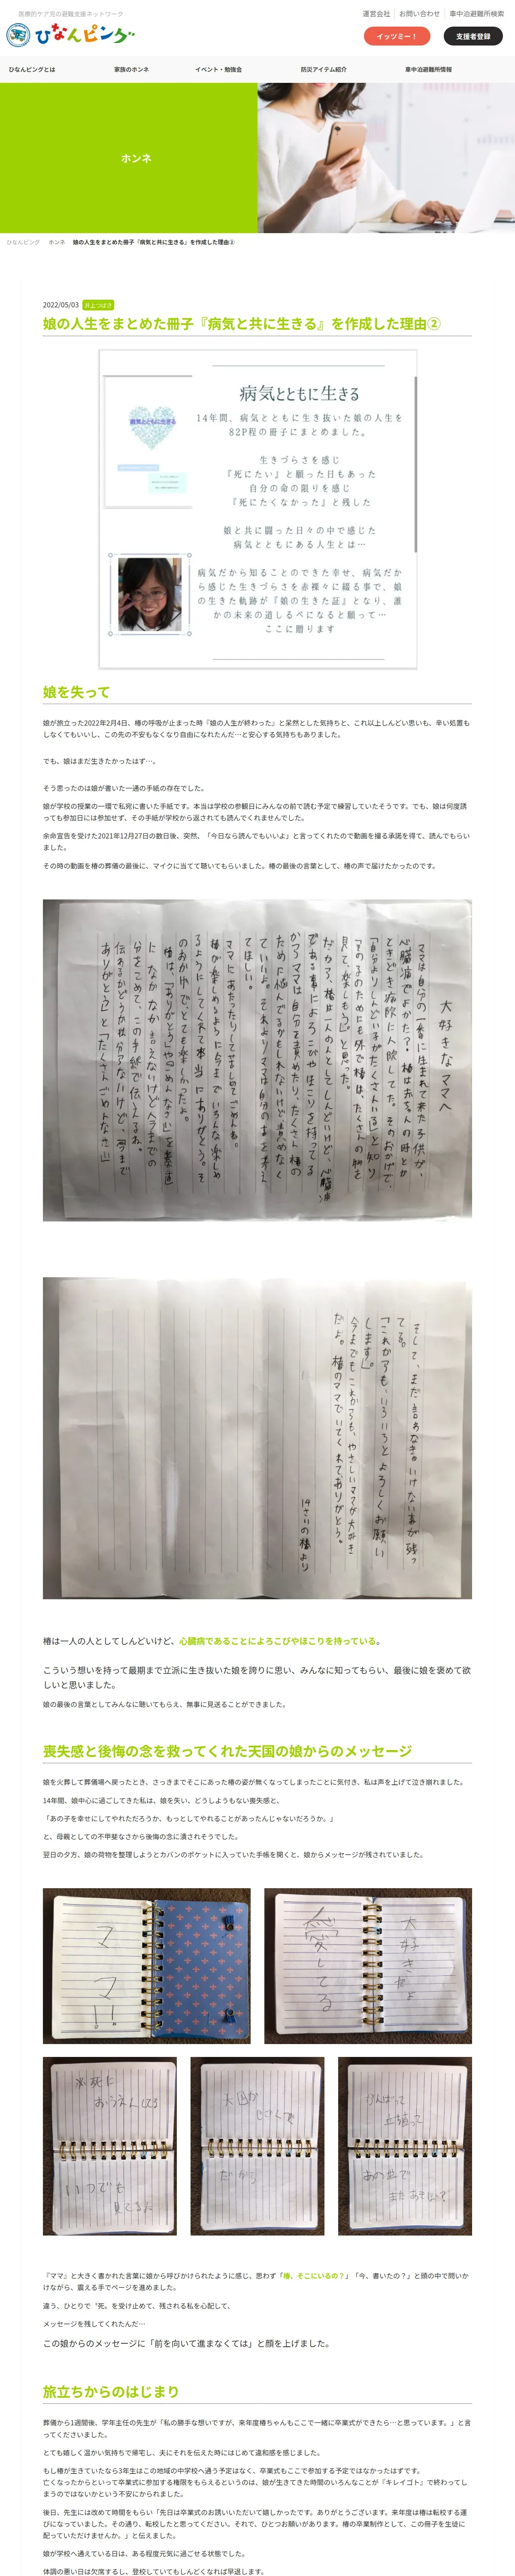 医療的ケア児の避難支援ネットワーク
ひなんピング
運営会社
お問い合わせ
車中泊避難所検索
イッツミー！
支援者登録
ひなんピングとは
家族のホンネ
イベント・勉強会
防災アイテム紹介
車中泊避難所情報
ホンネ
ひなんピング
ホンネ
娘の人生をまとめた冊子『病気と共に生きる』を作成した理由②
2022/05/03
井上つばさ
娘の人生をまとめた冊子『病気と共に生きる』を作成した理由②
病気とともに生きる
14年間、病気とともに生き抜いた娘の人生を
82P程の冊子にまとめました。
生きづらさを感じ
『死にたい』と願った日もあった
自分の命の限りを感じ
『死にたくなかった』と残した
娘と共に闘った日々の中で感じた
病気とともにある人生とは…
病気だから知ることのできた幸せ、病気だか
ら感じた生きづらさを赤裸々に綴る事で、娘
の生きた軌跡が『娘の生きた証』となり、誰
かの未来の道しるべになると願って…
ここに贈ります
病気とともに生きる
娘を失って
娘が旅立った2022年2月4日、椿の呼吸が止まった時『娘の人生が終わった』と呆然とした気持ちと、これ以上しんどい思いも、辛い処置も
しなくてもいいし、この先の不安もなくなり自由になれたんだ…と安心する気持ちもありました。
でも、娘はまだ生きたかったはず…。
そう思ったのは娘が書いた一通の手紙の存在でした。
娘が学校の授業の一環で私宛に書いた手紙です。本当は学校の参観日にみんなの前で読む予定で練習していたそうです。でも、娘は何度誘
っても参加日には参加せず、その手紙が学校から返されても読んでくれませんでした。
余命宣告を受けた2021年12月27日の数日後、突然、「今日なら読んでもいいよ」と言ってくれたので動画を撮る承諾を得て、読んでもらい
ました。
その時の動画を椿の葬儀の最後に、マイクに当てて聴いてもらいました。椿の最後の言葉として、椿の声で届けたかったのです。
大好きなママへ
ママは自分の一番に生まれて来た子供が、
心臓病でよかた？椿は赤ちゃんの時とか
ときどき病院に入院してた。そのおかげで、
「自分よりしんどい子がたくさんいる」と知り
「その子のためにも外で椿は、たくさんの物を
見て、楽しもう」と思った。
だから、椿は一人の人としてしんどいけど、心臓病
である事によろこびやほこりを持ってる
からママは自分を責めたり、たくさん椿の
ために悩んでるかもしれないけど責めなく
ていいよ。それよりママは自分の事を考え
てほしい。
ママにあたったりして苦しめてごめんね。
椿が楽めるように今までいろんな楽しめ
るようにしてくれて本当にありがとう。そ
のおかげでとても楽しかったよ。
椿は、「ありがとう」や「ごめんなさい」を素直
になかなか言えないけど今までの
分をこめて、この手紙で伝えるね。
伝わるかどうかは分らないけど、今まで
ありがとう」と「たくさんごめんなさい」
そして、まだ言わなきゃいけない事が残っ
てる。
「これからも、いろいろとよろしくお願い
します」。
今までもこれからも、やさしいママが大好き
だよ。椿のママでいてくれてありがとう。
14さいの椿より
椿は一人の人としてしんどいけど、心臓病であることによろこびやほこりを持っている。
こういう想いを持って最期まで立派に生き抜いた娘を誇りに思い、みんなに知ってもらい、最後に娘を褒めて欲
しいと思いました。
娘の最後の言葉としてみんなに聴いてもらえ、無事に見送ることができました。
喪失感と後悔の念を救ってくれた天国の娘からのメッセージ
娘を火葬して葬儀場へ戻ったとき、さっきまでそこにあった椿の姿が無くなってしまったことに気付き、私は声を上げて泣き崩れました。
14年間、娘中心に過ごしてきた私は、娘を失い、どうしようもない喪失感と、
「あの子を幸せにしてやれただろうか、もっとしてやれることがあったんじゃないだろうか。」
と、母親としての不甲斐なさから後悔の念に潰されそうでした。
翌日の夕方、娘の荷物を整理しようとカバンのポケットに入っていた手帳を開くと、娘からメッセージが残されていました。
ママ!!
大好きだよ
愛してる
必死に
おうえんしてる
いつでも
見てるよ
天国か
じごくで
だから
がんばって
頑張って
あの世で
またあそぼっ？
『ママ』と大きく書かれた言葉に娘から呼びかけられたように感じ、思わず「椿、そこにいるの？」「今、書いたの？」と頭の中で問いか
けながら、震える手でページを進めました。
違う、ひとりで〝死〟を受け止めて、残される私を心配して、
メッセージを残してくれたんだ…
この娘からのメッセージに「前を向いて進まなくては」と顔を上げました。
旅立ちからのはじまり
葬儀から1週間後、学年主任の先生が「私の勝手な想いですが、来年度椿ちゃんもここで一緒に卒業式ができたら…と思っています。」と言
ってくださいました。
とても嬉しく温かい気持ちで帰宅し、夫にそれを伝えた時にはじめて違和感を感じました。
もし椿が生きていたなら3年生はこの地域の中学校へ通う予定はなく、卒業式もここで参加する予定ではなかったはずです。
亡くなったからといって卒業式に参加する権限をもらえるというのは、娘が生きてきた時間のいろんなことが『キレイゴト』で終わってし
まうのではないかという不安にかられました。
後日、先生には改めて時間をもらい「先日は卒業式のお誘いいただいて嬉しかったです。ありがとうございます。来年度は椿は転校する運
びになっていました。その通り、転校したと思ってください。それで、ひとつお願いがあります。椿の卒業制作として、この冊子を生徒に
配っていただけませんか。」と伝えました。
娘が学校へ通えている日は、ある程度元気に過ごせる状態でした。
体調の悪い日は欠席するし、登校していてもしんどくなれば早退します。